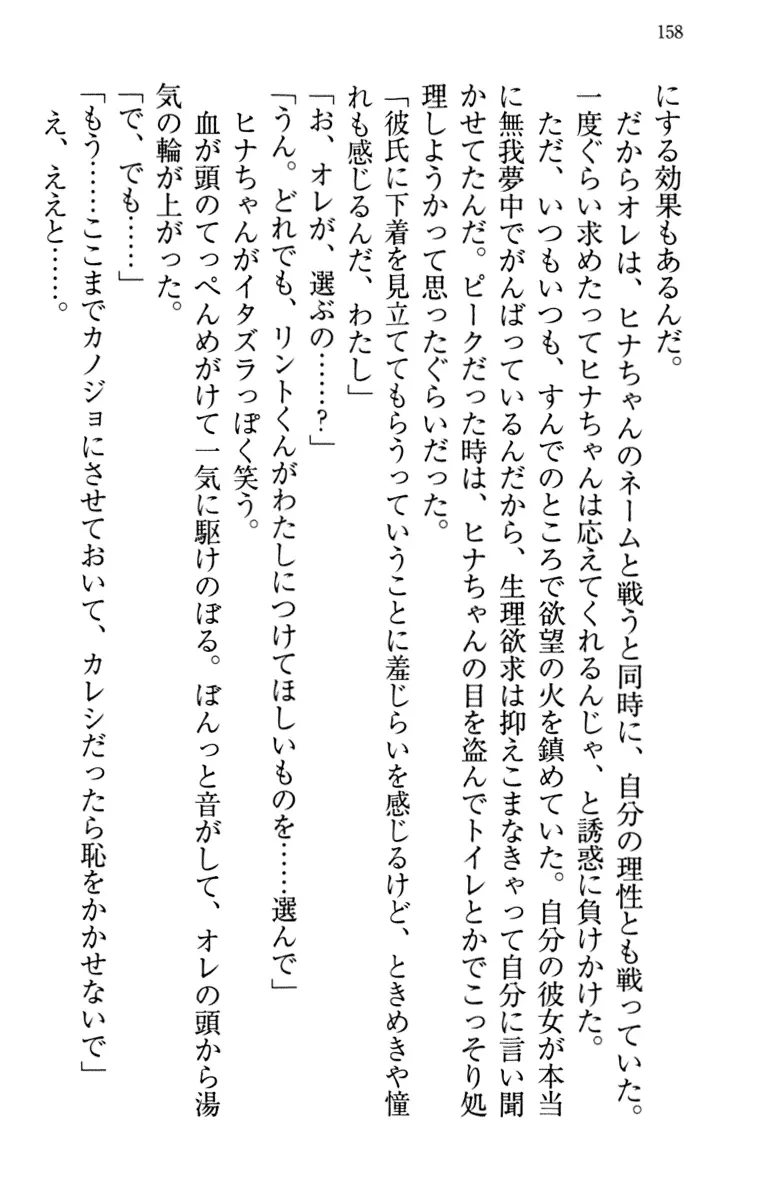 158
にする効果もあるんだ。
だからオレは、ヒナちゃんのネームと戦うと同時に、自分の理性とも戦っていた。
一度ぐらい求めたってヒナちゃんは応えてくれるんじゃ、と誘惑に負けかけた。
ただ、いつもいつも、すんでのところで欲望の火を鎮めていた。自分の彼女が本当
に無我夢中でがんばっているんだから、生理欲求は抑えこまなきゃって自分に言い聞
かせてたんだ。ピークだった時は、ヒナちゃんの目を盗んでトイレとかでこっそり処
理しようかって思ったぐらいだった。
「彼氏に下着を見立ててもらうっていうことに羞じらいを感じるけど、ときめきや憧
れも感じるんだ、わたし」
「お、オレが、選ぶの……?」
「うん。どれでも、リントくんがわたしにつけてほしいものを……選んで」
ヒナちゃんがイタズラっぽく笑う。
血が頭のてっぺんめがけて一気に駆けのぼる。ぼんっと音がして、オレの頭から湯
気の輪が上がった。
「で、でも……」
「もう……ここまでカノジョにさせておいて、カレシだったら恥をかかせないで」
え、ええと……。